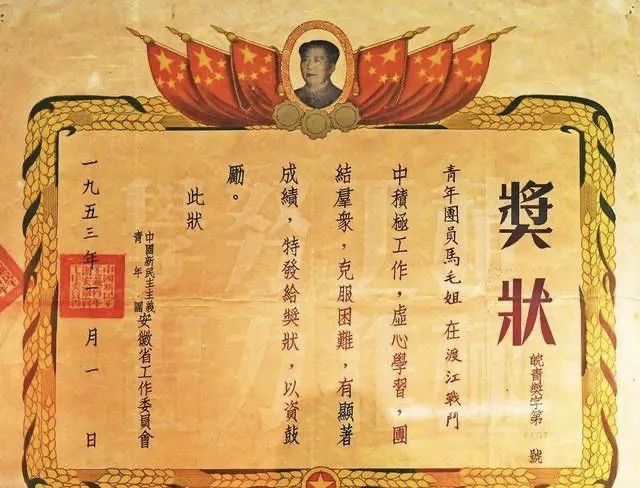 獎狀
皖青獎字第 號
青年團員馬毛姐在渡江戰鬥
中積極工作，虛心學習，團
結羣衆，克服困難，有顯著
成績，特發給獎狀，以資鼓
勵。
此狀
中國新民主主義青年團安徽省工作委員會
一九五三年一月一日